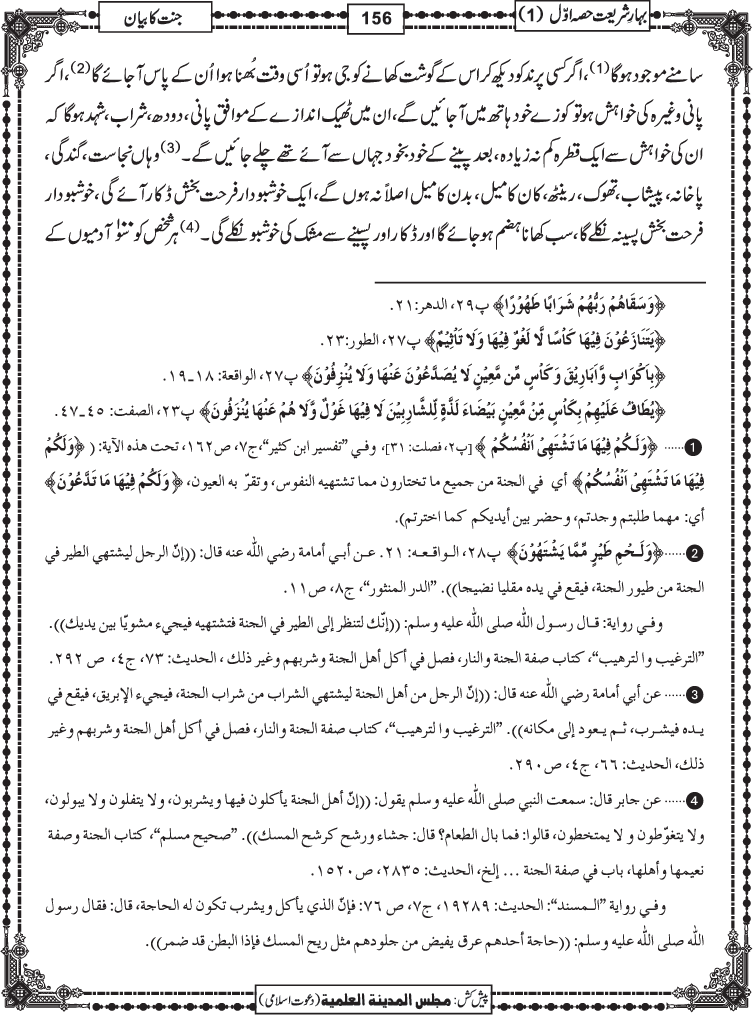 بہارِ شریعت حصہ اوّل (1)
156
جنت کا بیان
سامنے موجود ہوگا(1)، اگر کسی پرند کو دیکھ کر اس کے گوشت کھانے کو جی ہو تو اُسی وقت بُھنا ہوا اُن کے پاس آجائے گا(2)، اگر
پانی وغیرہ کی خواہش ہو تو کوزے خود ہاتھ میں آجائیں گے، ان میں ٹھیک اندازے کے موافق پانی، دودھ، شراب، شہد ہوگا کہ
ان کی خواہش سے ایک قطرہ کم نہ زیادہ، بعد پینے کے خود بخود جہاں سے آئے تھے چلے جائیں گے۔(3) وہاں نجاست، گندگی،
پاخانہ، پیشاب، تھوک، رینٹھ، کان کا میل، بدن کا میل اصلاً نہ ہوں گے، ایک خوشبودار فرحت بخش ڈکار آئے گی، خوشبودار
فرحت بخش پسینہ نکلے گا، سب کھانا ہضم ہوجائے گا اور ڈکار اور پسینے سے مشک کی خوشبو نکلے گی۔(4) ہر شخص کو سَو آدمیوں کے
﴿وَسَقَاهُمْ رَبُّهُمْ شَرَابًا طَهُوْرًا﴾ پ۲۹، الدهر:۲۱.
﴿يَتَنَازَعُوْنَ فِيْهَا كَأْسًا لَّا لَغْوٌ فِيْهَا وَلَا تَأْثِيْمٌ﴾ پ۲۷، الطور:۲۳.
﴿بِاَكْوَابٍ وَّاَبَارِيْقَ وَكَأْسٍ مِّن مَّعِيْنٍ لَا يُصَدَّعُوْنَ عَنْهَا وَلَا يُنْزِفُوْنَ﴾ پ۲۷، الواقعة: ۱۸۔۱۹.
﴿يُطَافُ عَلَيْهِمْ بِكَأْسٍ مِّنْ مَّعِيْنٍ بَيْضَاءَ لَذَّةٍ لِّلشَّارِبِيْنَ لَا فِيْهَا غَوْلٌ وَّلَا هُمْ عَنْهَا يُنْزَفُوْنَ﴾ پ۲۳، الصفت: ٤٥۔٤٧.
1 ...... ﴿وَلَكُمْ فِيْهَا مَا تَشْتَهِىْ اَنْفُسُكُمْ﴾ [پ۲، فصلت: ۳۱]، وفي ”تفسير ابن كثير“،ج۷، ص۱٦۲، تحت هذه الآية: ( ﴿وَلَكُمْ
فِيْهَا مَا تَشْتَهِىْ اَنْفُسُكُمْ﴾ أي في الجنة من جميع ما تختارون مما تشتهيه النفوس، وتقرّ به العيون، ﴿وَلَكُمْ فِيْهَا مَا تَدَّعُوْنَ﴾
أي: مهما طلبتم وجدتم، وحضر بين أيديكم كما اخترتم).
2 ......﴿وَلَحْمِ طَيْرٍ مِّمَّا يَشْتَهُوْنَ﴾ پ۲۸، الواقعه: ۲۱. عن أبي أمامة رضي الله عنه قال: ((إنّ الرجل ليشتهي الطير في
الجنة من طيور الجنة، فيقع في يده مقليا نضيجا)). ”الدر المنثور“، ج۸، ص۱۱.
وفي رواية: قال رسول الله صلى الله عليه وسلم: ((إنّك لتنظر إلى الطير في الجنة فتشتهيه فيجيء مشويّا بين يديك)).
”الترغيب والترهيب“، كتاب صفة الجنة والنار، فصل في أكل أهل الجنة وشربهم وغير ذلك ، الحديث: ۷۳، ج٤، ص ۲۹۲.
3 ...... عن أبي أمامة رضي الله عنه قال: ((إنّ الرجل من أهل الجنة ليشتهي الشراب من شراب الجنة، فيجيء الإبريق، فيقع في
يده فيشرب، ثم يعود إلى مكانه)). ”الترغيب والترهيب“، كتاب صفة الجنة والنار، فصل في أكل أهل الجنة وشربهم وغير
ذلك، الحديث: ٦٦، ج٤، ص۲۹۰.
4 ...... عن جابر قال: سمعت النبي صلى الله عليه وسلم يقول: ((إنّ أهل الجنة يأكلون فيها ويشربون، ولا يتفلون ولا يبولون،
ولا يتغوّطون و لا يمتخطون، قالوا: فما بال الطعام؟ قال: جشاء ورشح كرشح المسك)). ”صحيح مسلم“، كتاب الجنة وصفة
نعيمها وأهلها، باب في صفة الجنة ... إلخ، الحديث: ۲۸۳٥، ص۱٥۲۰.
وفي رواية ”المسند“: الحديث: ۱۹۲۸۹، ج۷، ص ۷٦: فإنّ الذي يأكل ويشرب تكون له الحاجة، قال: فقال رسول
الله صلى الله عليه وسلم: ((حاجة أحدهم عرق يفيض من جلودهم مثل ريح المسك فإذا البطن قد ضمر)).
پیش کش: مجلس المدینة العلمیة (دعوت اسلامی)